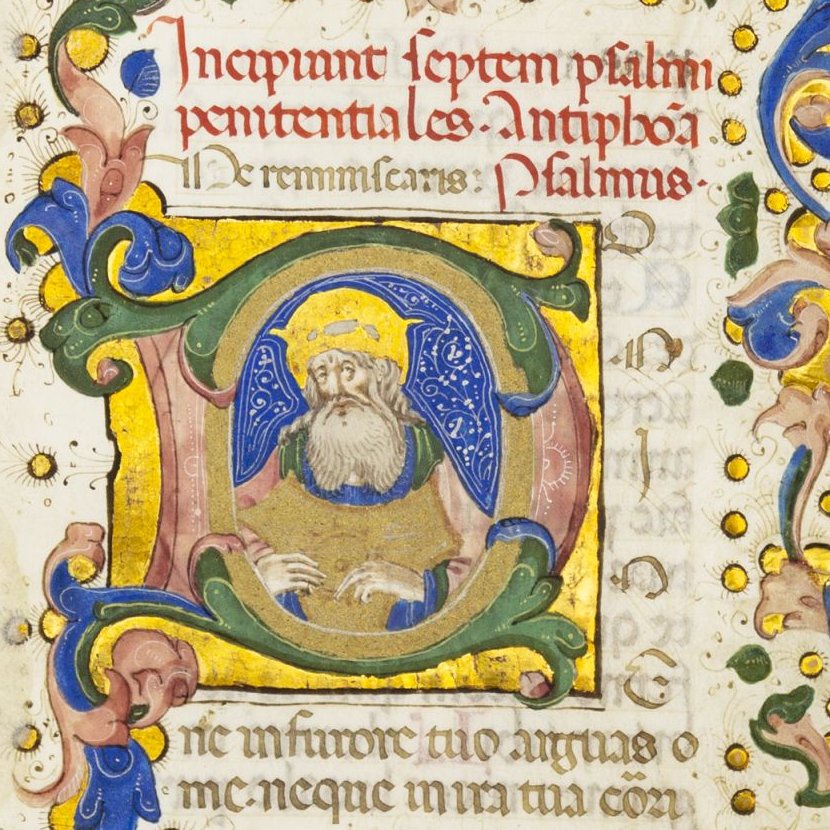 Incipiunt septem psalmi
penitentiales. Antipho᷒a
Ne reminiscaris: Psalmus.
D
O
M
I
N
E
ne in furore tuo arguas
me. neque in ira tua cōri